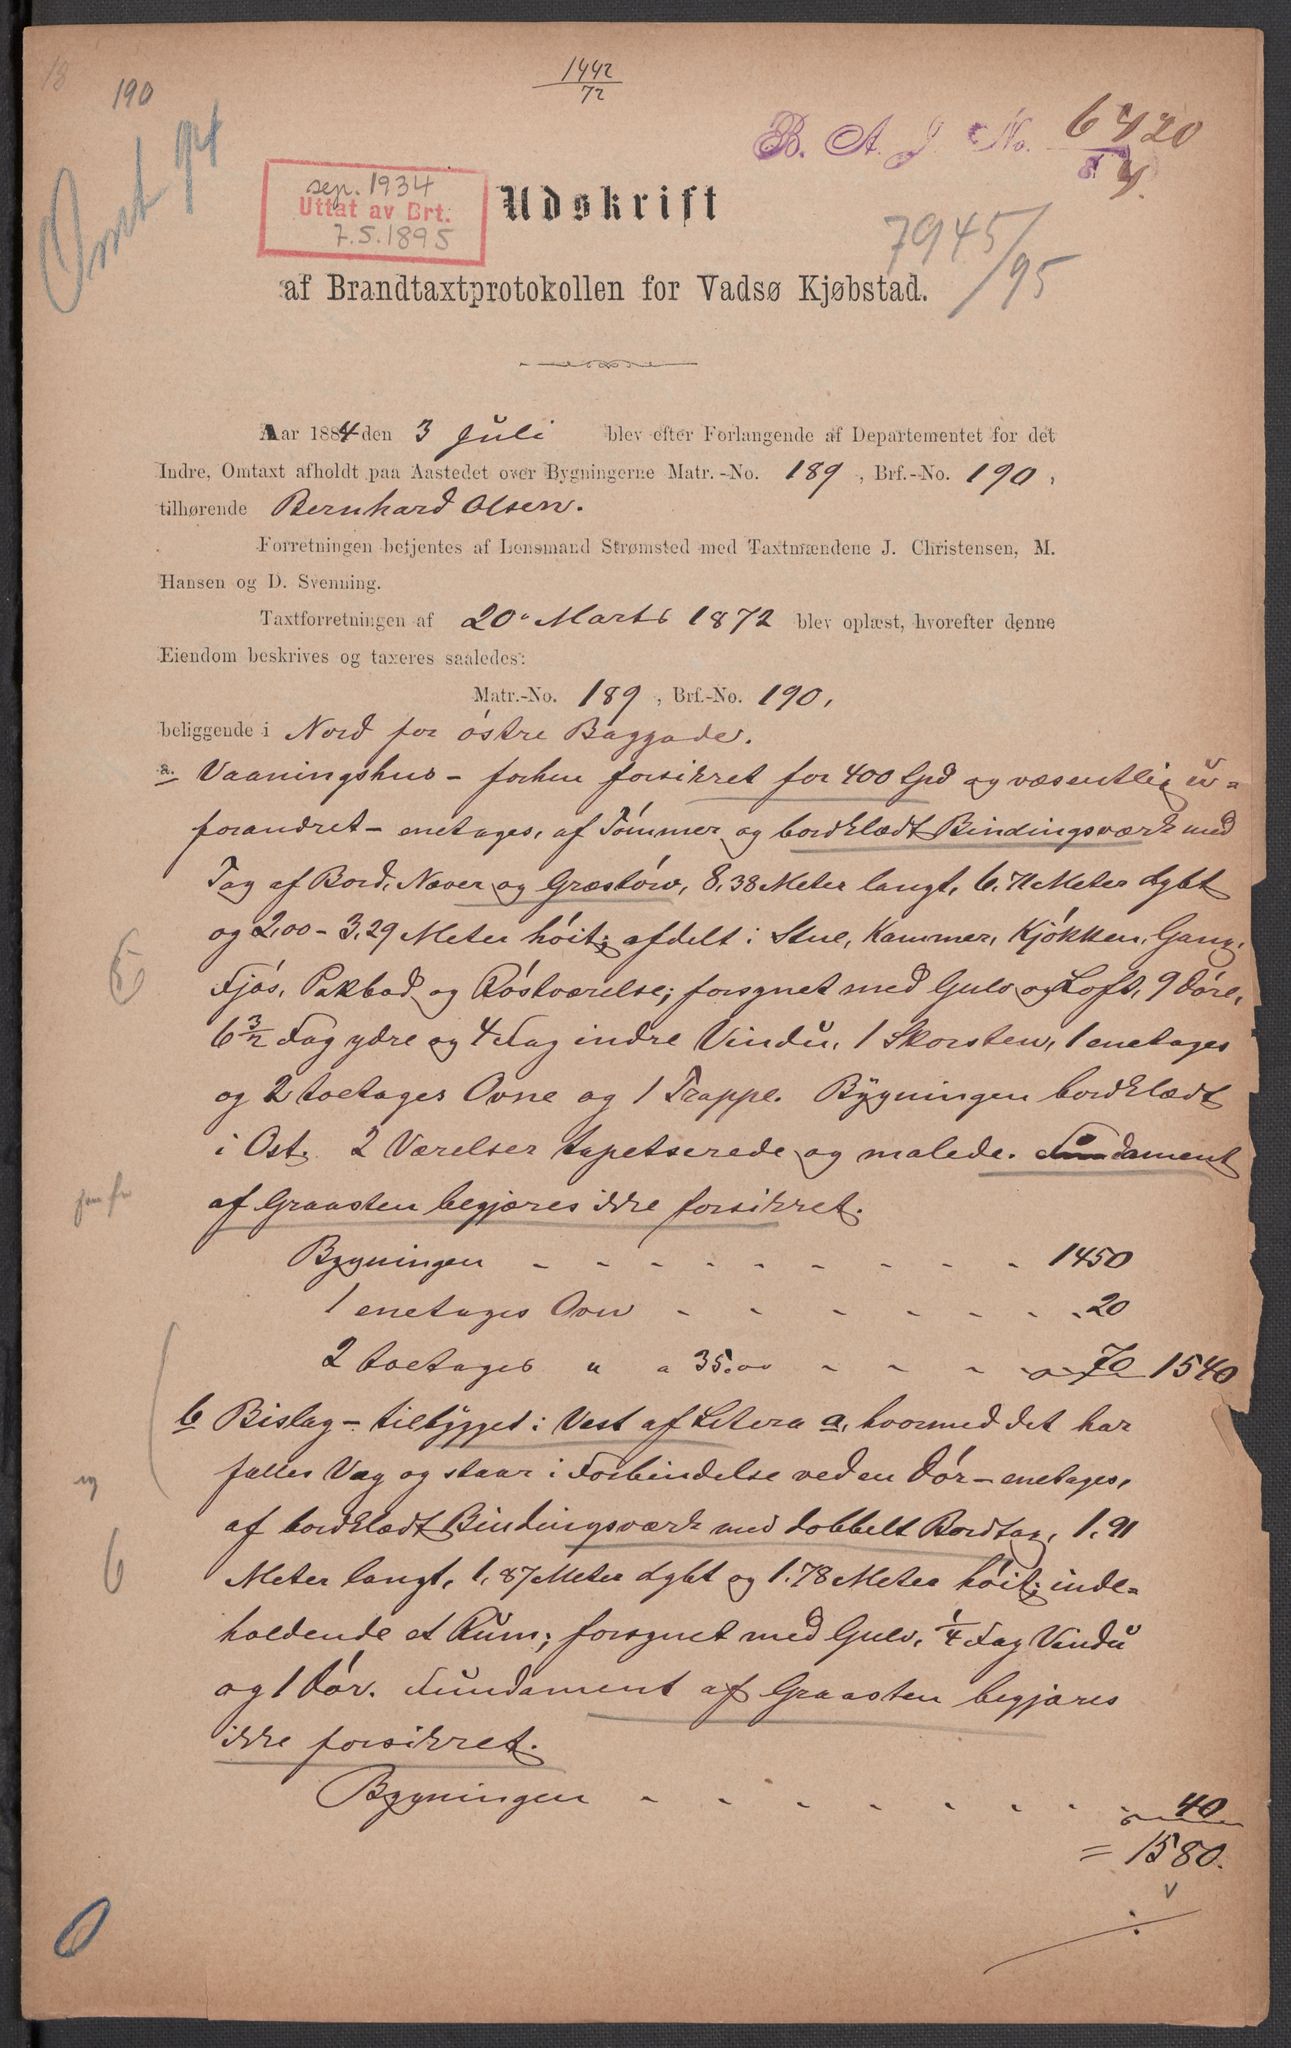 18
190
1442
72
Omt 94
B. A. J. No. 6420
84
sep. 1934
Uttat av Brt.
7.5.1895
Udskrift
7945/95
af Brandtaxtprotokollen for Vadsø Kjøbstad.
Aar 1884 den 3 Juli blev efter Forlangende af Departementet for det
Indre, Omtaxt afholdt paa Aastedet over Bygningerne Matr.-No. 189, Brf.-No. 190,
tilhørende Bernhard Olsen.
Forretningen betjentes af Lensmand Strømsted med Taxtmændene J. Christensen, M.
Hansen og D. Svenning.
Taxtforretningen af 20 Marts 1872 blev oplæst, hvorefter denne
Eiendom beskrives og taxeres saaledes:
Matr.-No. 189, Brf.-No. 190,
beliggende i Nord for østre Baggade.
a. Vaaningshus - forhen forsikret for 400 Spd og væsentlig u=
forandret - enetages, af Tømmer og bordklædt Bindingsværk med
Tag af Bord, Næver og Græstørv, 8,38 Meter langt, 6,71 Meter dybt
og 2,00 - 3,29 Meter høit; afdelt i Stue, Kammer, Kjøkken, Gang,
5
Fjøs, Pakbod og Røstværelse; forsynet med Gulv og Loft, 9 Døre,
6 3/2 Fag ydre og 4 Fag indre Vindu, 1 Skorsten, 1 enetages
og 2 toetages Ovne og 1 Trappe. Bygningen bordklædt
i Ost. 2 Værelser tapetserede og malede. Fundament
af Graasten begjæres ikke forsikret.
Bygningen - - - - - - - - - 1450
1 enetages Ovn - - - - - - - 20
2 toetages " a 35.00 - - - - - 70 1540
b Bislag - tilbygget i Vest af Litera a, hvormed det har
fælles Væg og staar i Forbindelse ved en Dør - enetages,
og
af bordklædt Bindingsværk med dobbelt Bordtag, 1,91
6
Meter langt, 1,87 Meter dybt og 1,78 Meter høit; inde=
holdende et Rum; forsynet med Gulv, 1/4 Fag Vindu
og 1 Dør. Fundament af Graasten begjæres
ikke forsikret.
Bygningen - - - - - - - - 40
= 1580.
0